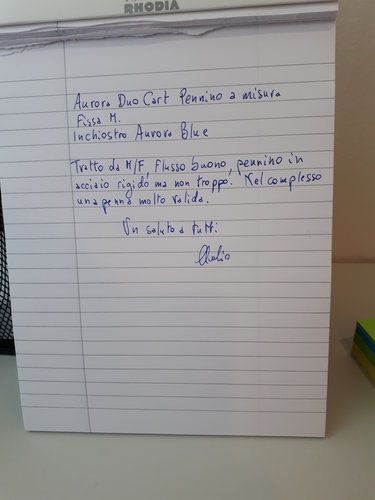 RHODIA
Aurora Duo Cart Pennino a misura
Fissa M.
Inchiostro Aurora Blue
Tratto da M/F, Flusso buono, pennino in
acciaio rigido ma non troppo. Nel complesso
una penna molto valida.
Un saluto a tutti